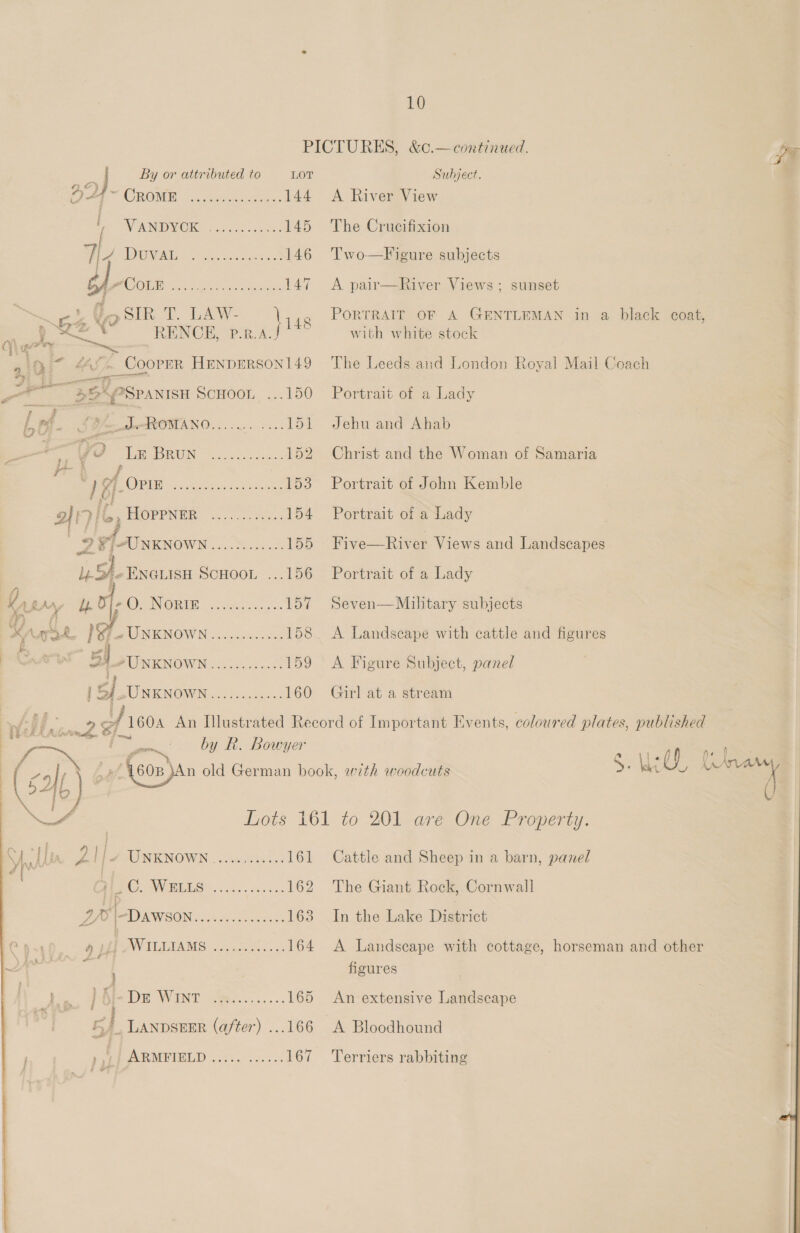 10
PICTURES, &c.—continued.
By or attributed to LOT Subject.
CROME ............... 144 A River View
VANDYCK ............ 145 The Crucifixion
DUVAL ............... 146 Two—Figure subjects
COLE .................. 147 A pair—River Views; sunset
SIR T. LAW- RENCE, P.R.A. } 148 PORTRAIT OF A GENTLEMAN in a black coat,
with white stock
COOPER HENDERSON 149 The Leeds and London Royal Mail Coach
SPANISH SCHOOL ...150 Portrait of a Lady
J. ROMANO............ 151 Jehu and Ahab
LE BRUN ............ 152 Christ and the Woman of Samaria
OPIE .................. 153 Portrait of John Kemble
HOPPNER ............ 154 Portrait of a Lady
UNKNOWN............ 155 Five—River Views and Landscapes
ENGLISH SCHOOL ...156 Portrait of a Lady
O. NORIE ............ 157 Seven—Military subjects
UNKNOWN............ 158 A Landscape with cattle and figures
UNKNOWN............ 159 A Figure Subject, panel
UNKNOWN............ 160 Girl at a stream
160A An Illustrated Record of Important Events, coloured plates, published
by R. Bowyer
160B An old German book, with woodcuts
Lots 161 to 201 are One Property.
UNKNOWN............ 161 Cattle and Sheep in a barn, panel
C. WELLS ............ 162 The Giant Rock, Cornwall
DAWSON............... 163 In the Lake District
WILLIAMS ............ 164 A Landscape with cottage, horseman and other
figures
DE WINT ............ 165 An extensive Landscape
LANDSEER (after) ...166 A Bloodhound
ARMFIELD ............ 167 Terriers rabbiting